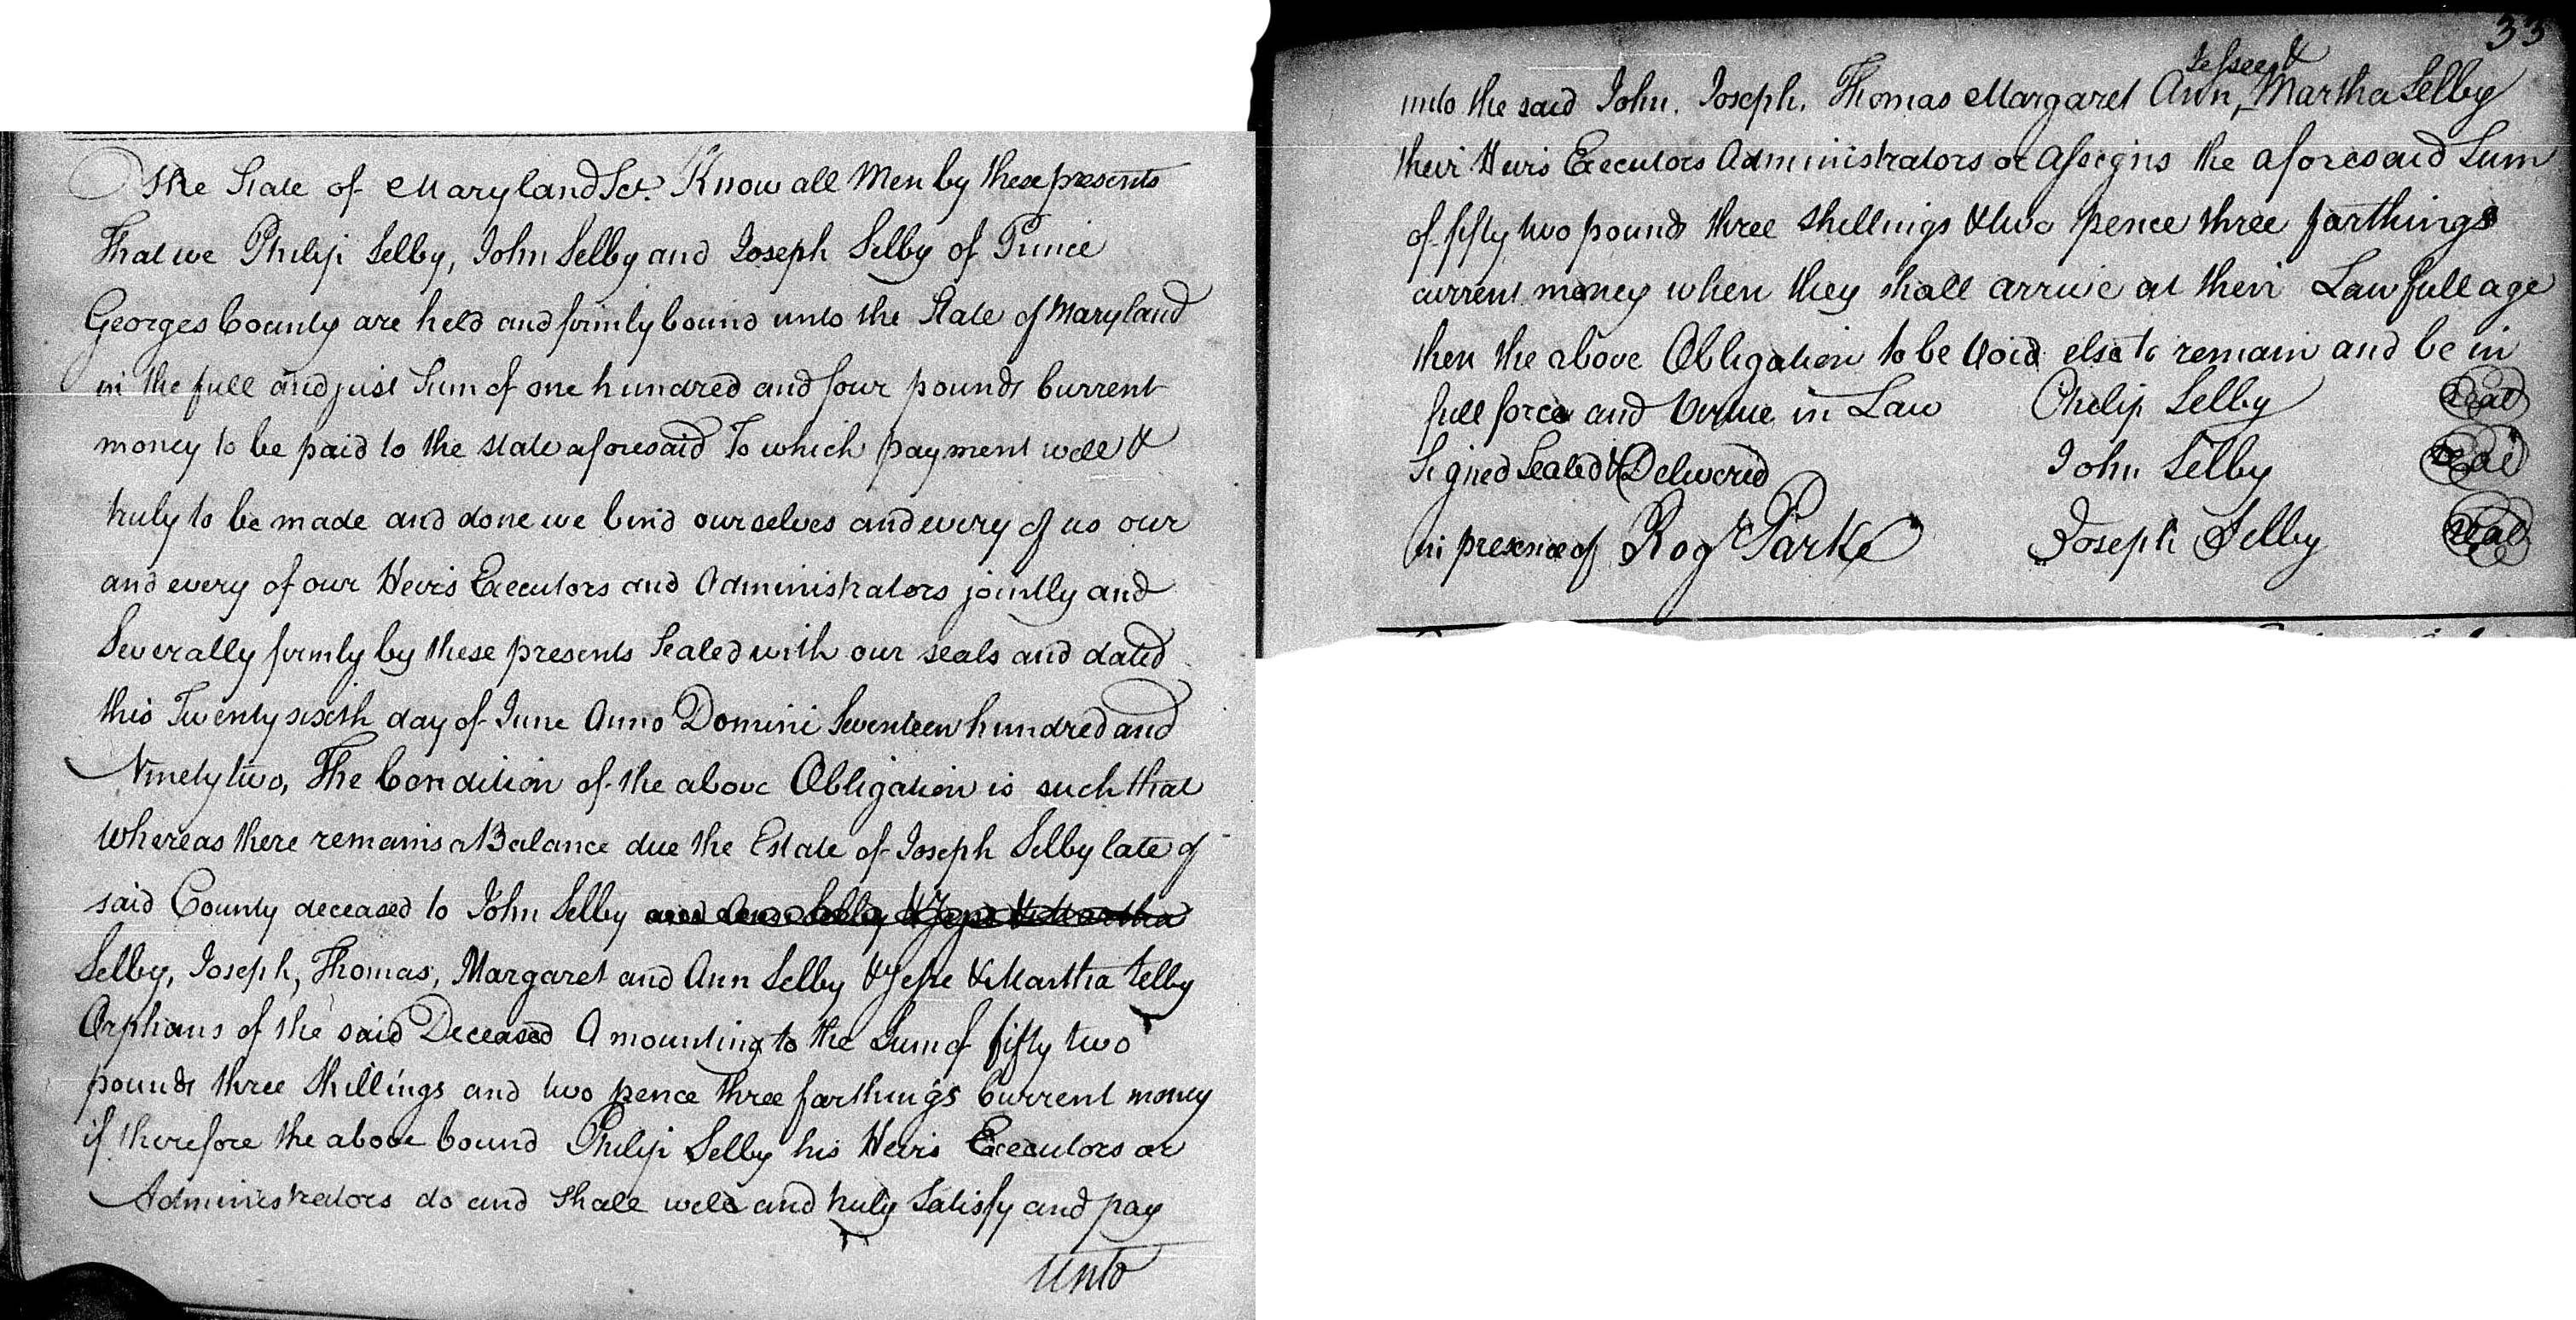 The State of Maryland Sct. Know all Men by these presents
That we Philip Selby, John Selby and Joseph Selby of Prince
Georges County are held and firmly bound unto the State of Maryland
in the full and just Sum of one hundred and four pounds Current
money to be paid to the state aforesaid To which payment well &
truly to be made and done we bind ourselves and every of us our
and every of our Heirs Executors and Administrators jointly and
Severally firmly by these presents Sealed with our seals and dated
this Twenty sixth day of June Anno Domini Seventeen hundred and
Ninety two, The Condition of the above Obligation is such that
Whereas there remains a Balance due the Estate of Joseph Selby late of
said County deceased to John Selby and Ann Selby & Jesse & Martha
Selby, Joseph, Thomas, Margaret and Ann Selby & Jesse & Martha Selby
Orphans of the said Deceased Amounting to the Sum of fifty two
pounds three Shillings and two pence three farthings Current money
if therefore the above bound Philip Selby his Heirs Executors or
Administrators do and shall well and truly Satisfy and pay
Unto
33
Jessee &
unto the said John, Joseph, Thomas Margaret Ann, Martha Selby
their Heirs Executors Administrators or Assigns the aforesaid Sum
of fifty two pounds three shillings & two pence three farthings
current money when they shall arrive at their Lawfull age
then the above Obligation to be Void else to remain and be in
full force and Virtue in Law Philip Selby Seal
Signed Sealed & Delivered John Selby seal
in presence of Rog Parke Joseph Selby seal